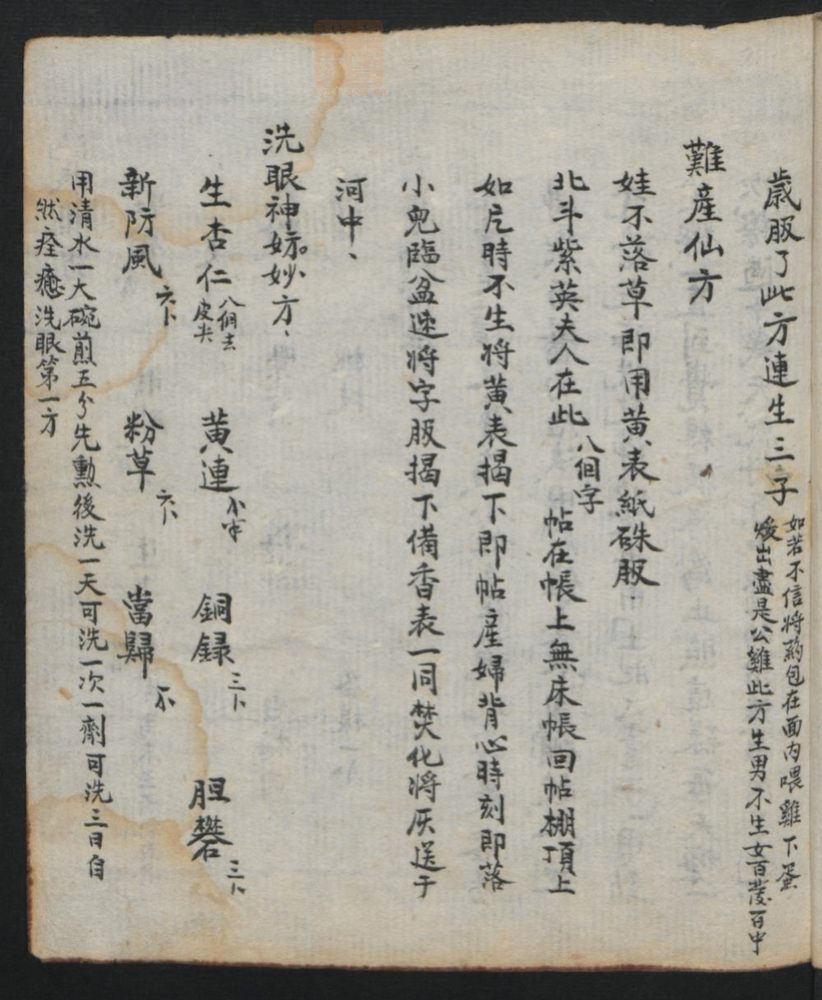 歲服了此方連生三子
如若不信將葯包在面内喂雞下蛋
煖出盡是公雞此方生男不生女百發百中
難產仙方
娃不落草即用黄表紙硃服
北斗紫英夫人在此 八個字 帖在帳上無床帳回帖棚頂上
如片時不生將黄表揭下即帖產婦背心時刻即落
小兒臨盆速將字服揭下備香表一同焚化將灰送于
河中、
洗眼神妙方、
生杏仁 八個去皮尖 黄連 銅録 胆礬
新防風 粉草 當歸
用清水一大碗煎五分先勳後洗一天可洗一次一劑可洗三日自
然痊癒洗眼第一方